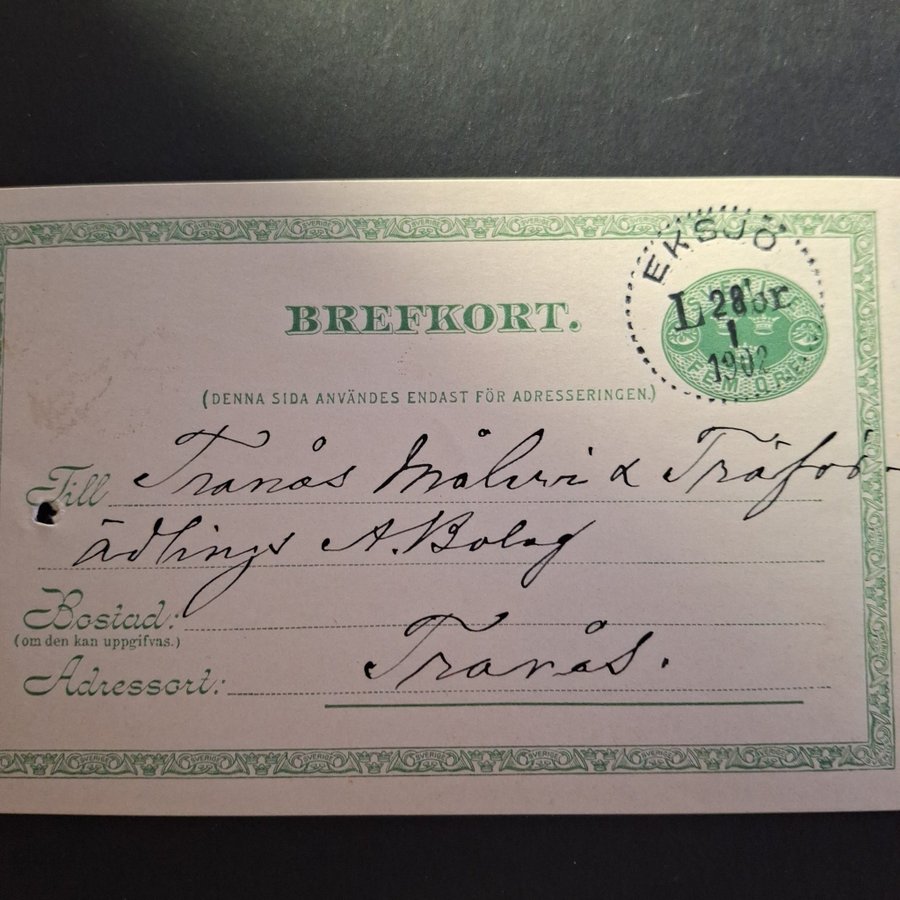 EKSJÖ
L 28 br
1
1902
FEM ÖRE
BREFKORT.
(DENNA SIDA ANVÄNDES ENDAST FÖR ADRESSERINGEN.)
Till Tranås Måleri & Träför-
ädlings A. Bolag
Bostad:
(om den kan uppgifvas.)
Adressort: Tranås.